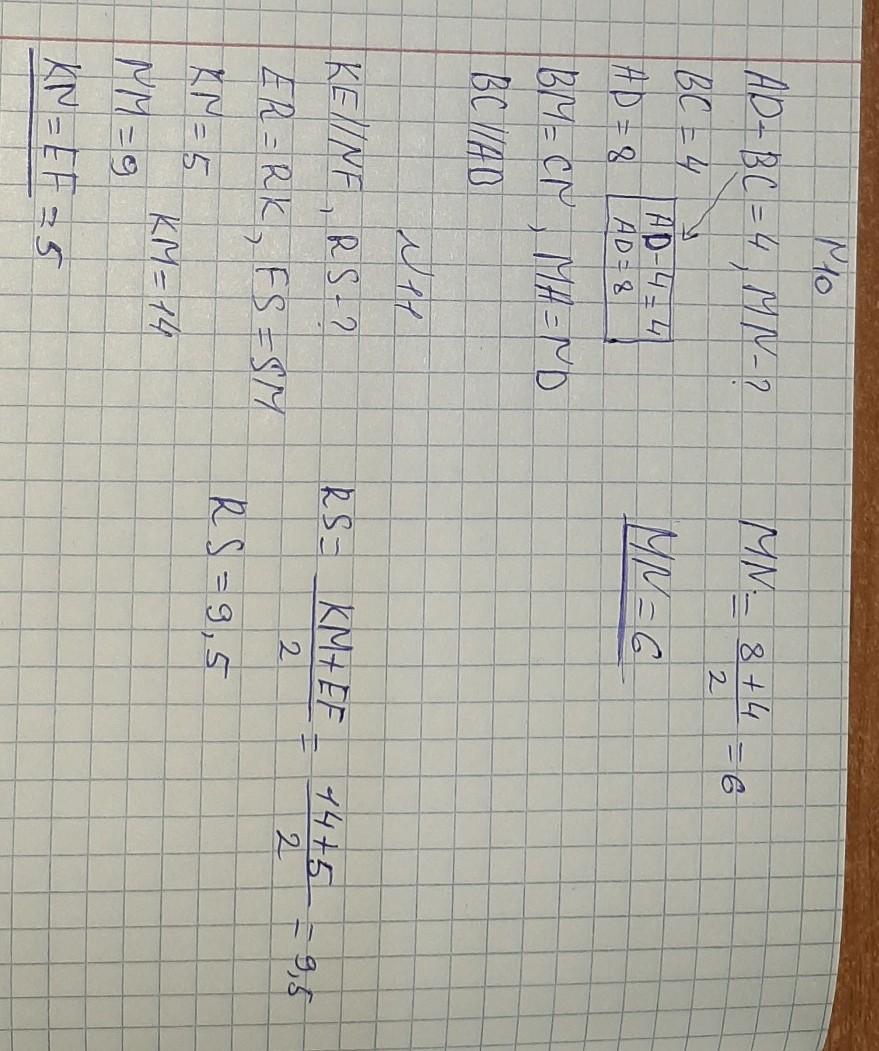 N10
AD-BC=4, MN-?
BC=4
AD-4=4
AD=8
AD=8
BM=CN, MA=ND
BC||AD
MN=
8+4
2
=6
MN=6
N11
KE||NF, RS-?
ER=RK, FS=SM
KN=5
KM=14
NM=9
KN=EF=5
RS=
KM+EF
2
=
14+5
2
=9,5
RS=9,5